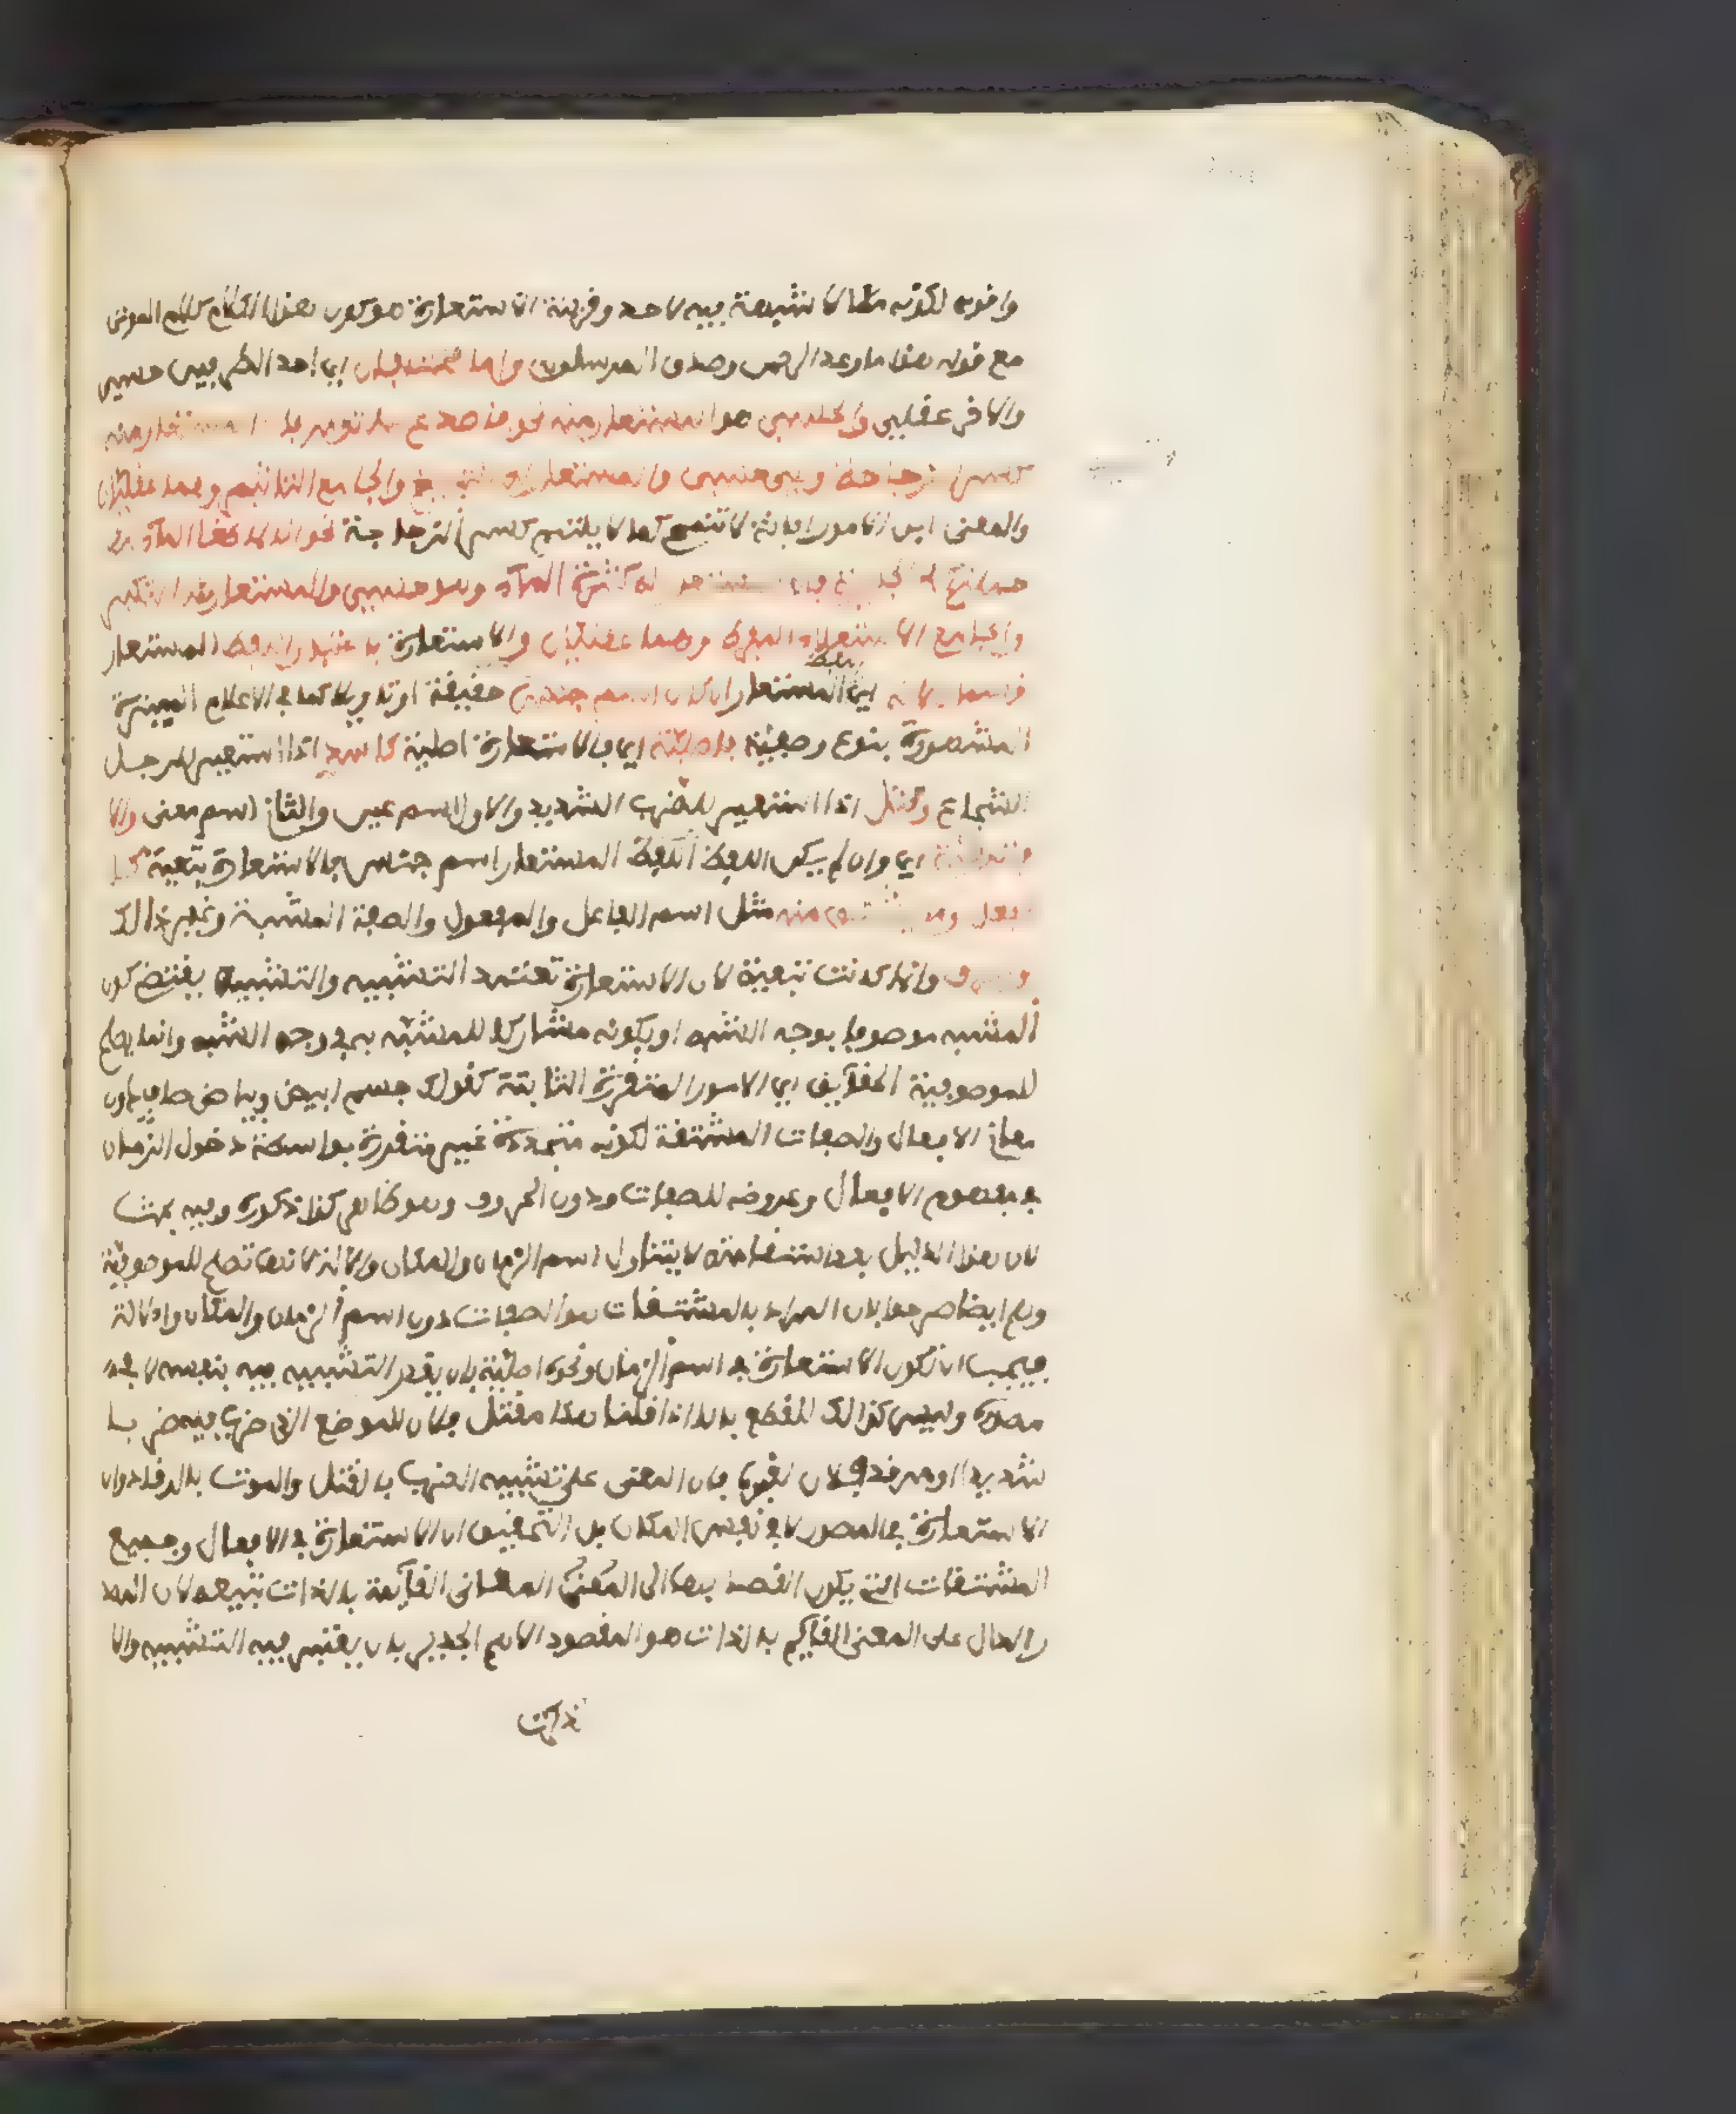 واقوى لكونه مما لا شبهة فيه لاحد وقرينة الاستعارة هو كون هذا الكلام كلام الموتى
مع قوله هذا ما وعد الرحمن وصدق المرسلون واما مختلفان اي احد الطرفين حسي
والاخر عقلي والحسي هو المستعار منه نحو فاصدع بما تومر فان المستعار منه
كسر الزجاجة وهو حسي والمستعار له التبليغ والجامع التاثير وهما عقليان
والمعنى ابن الامور ابانة لا تنمحي كما لا يلتئم كسر الزجاجة نحو انا لما طغا الماء
حملناكم في الجارية فان المستعار له كثرة الماء وهو حسي والمستعار منه التكبر
والجامع الاستعلاء المفرط وهما عقليان والاستعارة باعتبار اللفظ المستعار
قسمان لانه اي اللفظ المستعار ان كان اسم جنس حقيقة او تاويلا كما في الاعلام المشتهرة
المشهورة بنوع وصفية فاصلية اي فالاستعارة اصلية كاسد اذا استعير للرجل
الشجاع وقتل اذا استعير للضرب الشديد والاول اسم عين والثاني اسم معنى والا
فتبعية اي وان لم يكن اللفظ اللفظ المستعار اسم جنس فالاستعارة تبعية كا
لفعل وما يشتق منه مثل اسم الفاعل والمفعول والصفة المشبهة وغير ذالك
والحرف وانما كانت تبعية لان الاستعارة تعتمد التشبيه والتشبيه يقتضي كون
المشبه موصوفا بوجه الشبه او بكونه مشاركا للمشبه به في وجه الشبه وانما يصلح
للموصوفية الحقايق اي الامور المتقررة الثابتة كقولك جسم ابيض وبياض صاف دون
معاني الافعال والصفات المشتقة لكونه متجددة غير متقررة بواسطة دخول الزمان
في مفهوم الافعال وعروضه للصفات ودون الحروف وهو ظاهر كذا ذكروه وفيه بحث
لان هذا الدليل بعد استقامته لا يتناول اسم الزمان والمكان والالة لانها تصلح للموصوفية
وهم ايضا صرحوا بان المراد بالمشتقات هو الصفات دون اسم الزمان والمكان والالة
فيجب ان تكون الاستعارة في اسم الزمان ونحوه اصلية بان يقدر التشبيه فيه بنفسه لا في
مصدره وليس كذالك للقطع بانا اذا قلنا هذا مقتل فلان للموضع الذي ضرب فيه ضربا
شديدا او مرقد فلان لقبره فان المعنى على تشبيه الضرب بالقتل والموت بالرقاد وان
الاستعارة في المصدر لا في نفس المكان بل التحقيق ان الاستعارة في الافعال وجميع
المشتقات التي يكون القصد بها الى المعنى المعاني القائمة بالذات تبعية لان المصد
ر الدال على المعنى القائم بالذات هو المقصود الاهم الجدير بان يعتبر فيه التشبيه والا
ذكرت